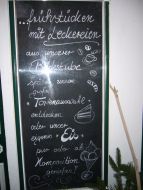 ...frühstücken
mit Leckereien
aus unserer
Backstube
gute
Tortenauswahl
entdecken
oder unser
eigenes
Eis
pur oder als
Komposition
genießen!